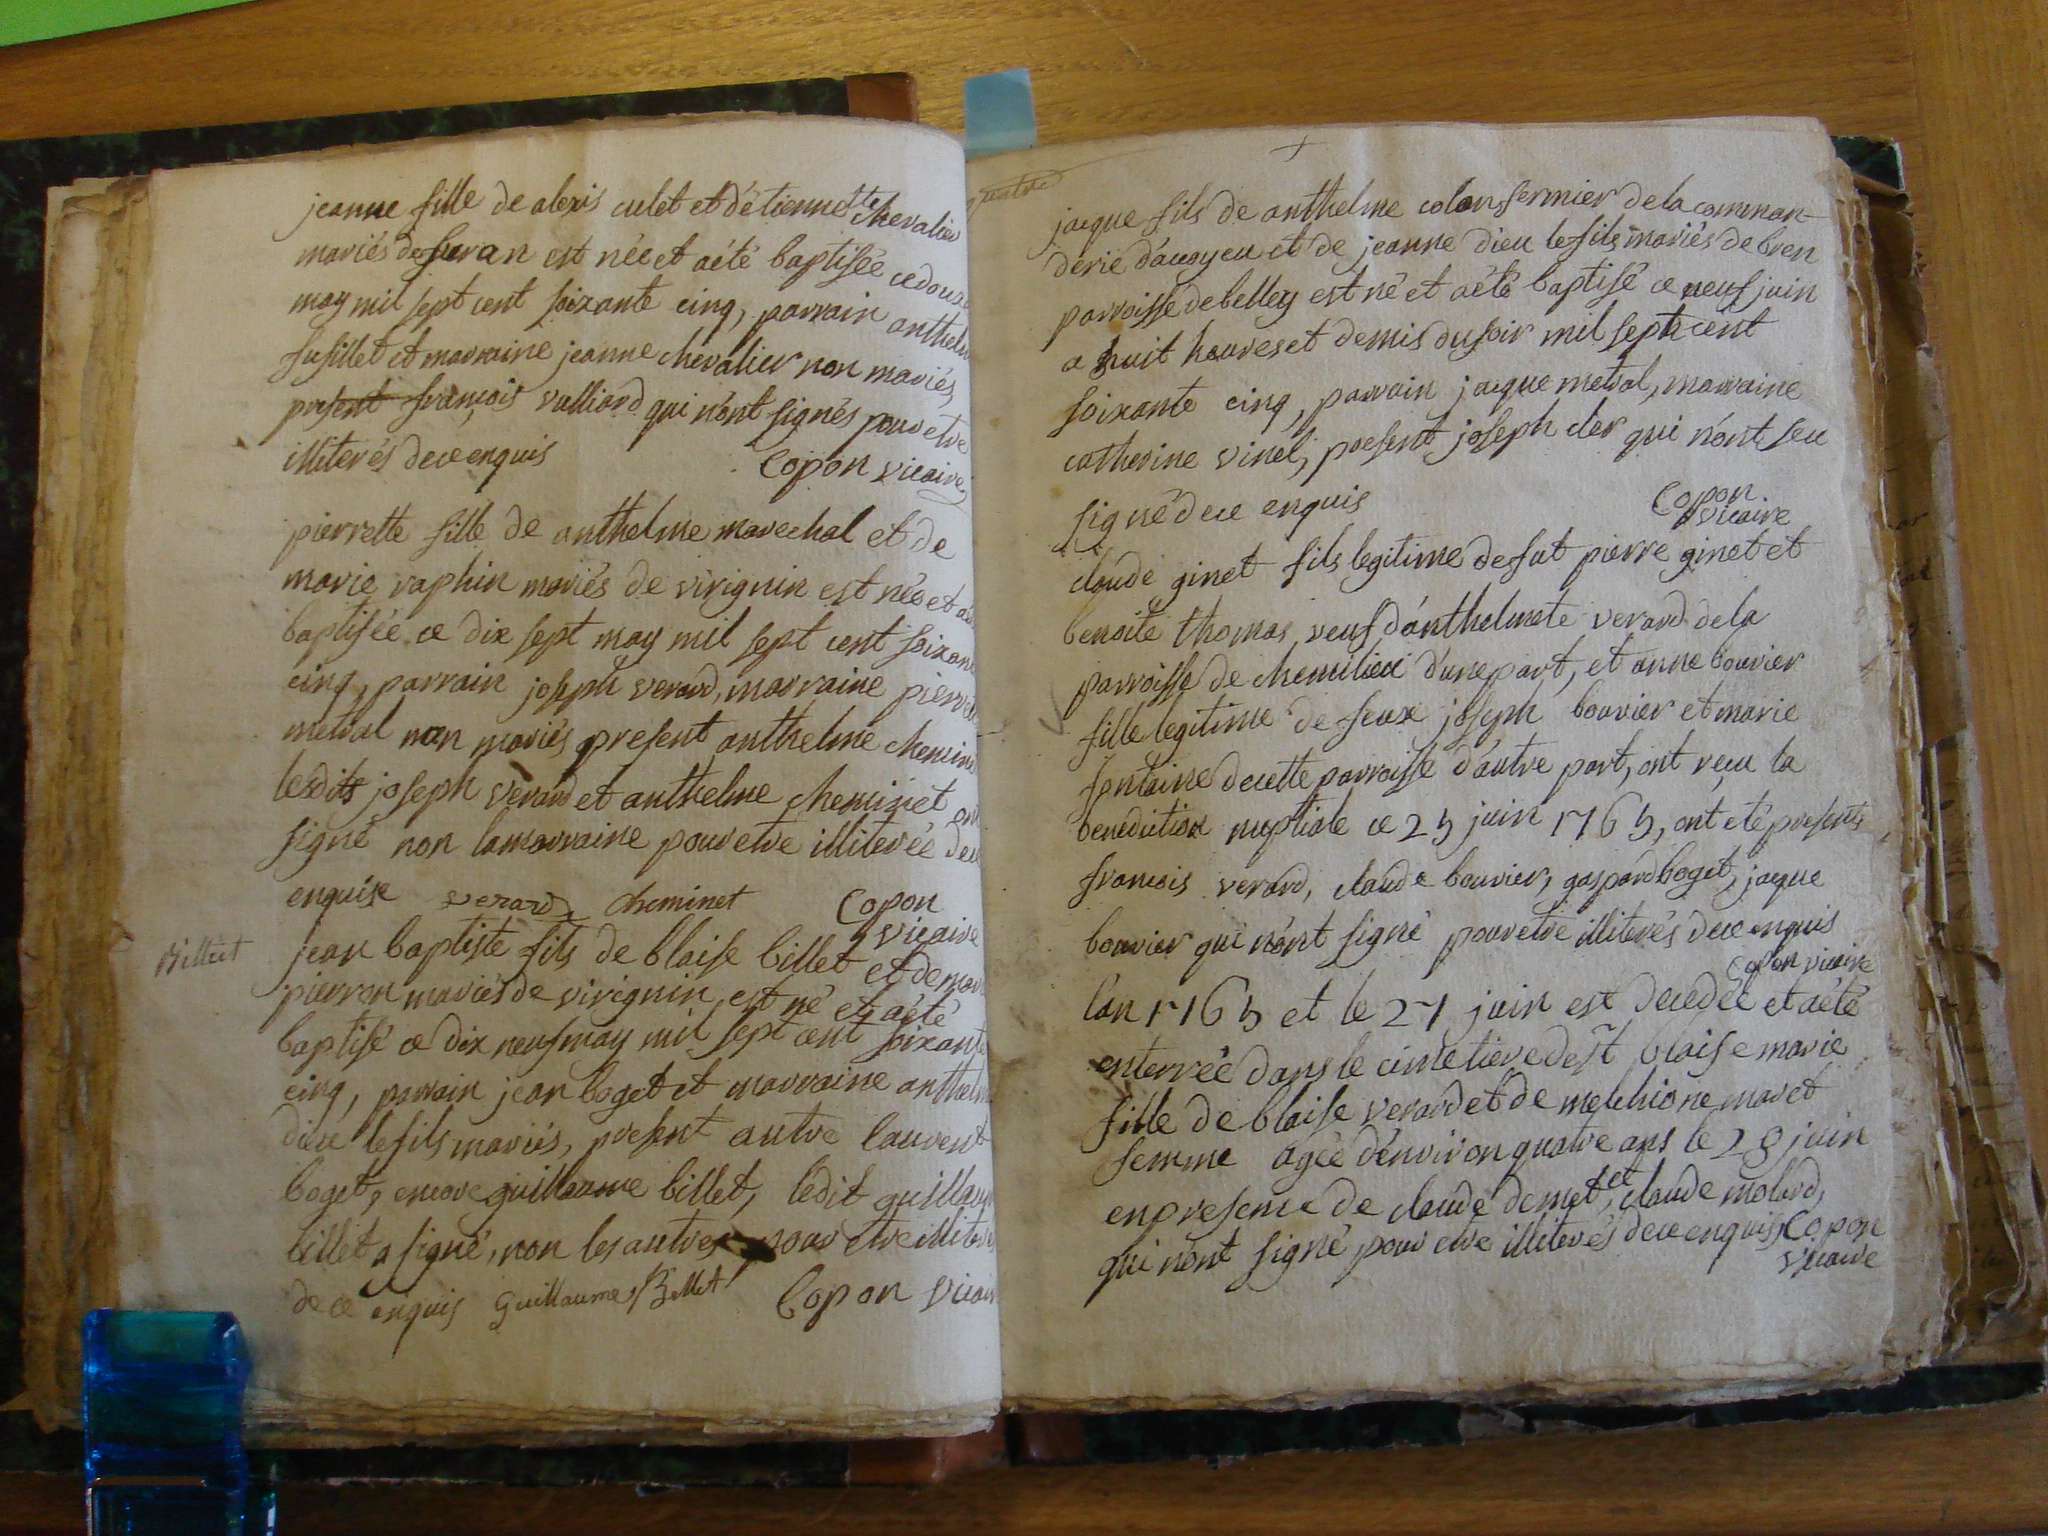 jeanne fille de alexis culet et d'étiennette chevalier
mariés de suran est née et aété baptisée ce douze
may mil sept cent soixante cinq, parrain anthelm
fusillet et marraine jeanne chevalier non mariés,
present françois vulliard qui n'ont signés pour etre
illiterés de ce enquis Copon vicaire
pierrette fille de anthelme marechal et de
marie raphin mariés de virignin est née et aét
baptisée ce dix sept may mil sept cent soixant
cinq, parrain joseph verard, marraine pierret
metral non mariés present anthelme cheminet
lesdits joseph verard et anthelme cheminet ont
signé non la marraine pour etre illiterée de ce
enquise verard cheminet Copon
vicaire
Billiet
jean baptiste fils de blaise billet et de mari
pierron mariés de virignin est né et aété
baptisé ce dix neuf may mil sept cent soixante
cinq, parrain jean boget et marraine anthelm
dieu le fils mariés, present autre laurent
boget, encore guillaume billet, ledit guillaum
billet a signé, non les autres pour etre illiteré
de ce enquis Guillaume Billet Copon vicair
jacque fils de anthelme colon fermier de la comman-
derie d'acoyeu et de jeanne dieu le fils mariés de bren
parroisse de belley est né et aété baptisé ce neuf juin
a huit heures et demis du soir mil sept cent
soixante cinq, parrain jacque metral, marraine
catherine vinel, present joseph cler qui n'ont seu
signé de ce enquis Copon
vicaire
claude ginet fils legitime de fut pierre ginet et
benoite thomas veuf d'anthelmete verard de la
parroisse de chemilieu d'une part, et anne bouvier
fille legitime de feux joseph bouvier et marie
fontaine de cette parroisse d'autre part, ont reçu la
benediction nuptiale ce 25 juin 1765, ont eté presents
francois verard, claude bouvier, gaspard boget, jacque
bouvier qui n'ont signé pour etre illiterés de ce enquis
Copon vicaire
l'an 1765 et le 27 juin est decedée et aété
enterrée dans le cimetiere de st blaise marie
fille de blaise verard et de melchione maret
femme agée d'environ quatre ans le 28 juin
en presence de claude demet, et claude molard,
qui n'ont signé pour etre illiterés de ce enquis Copon
vicaire